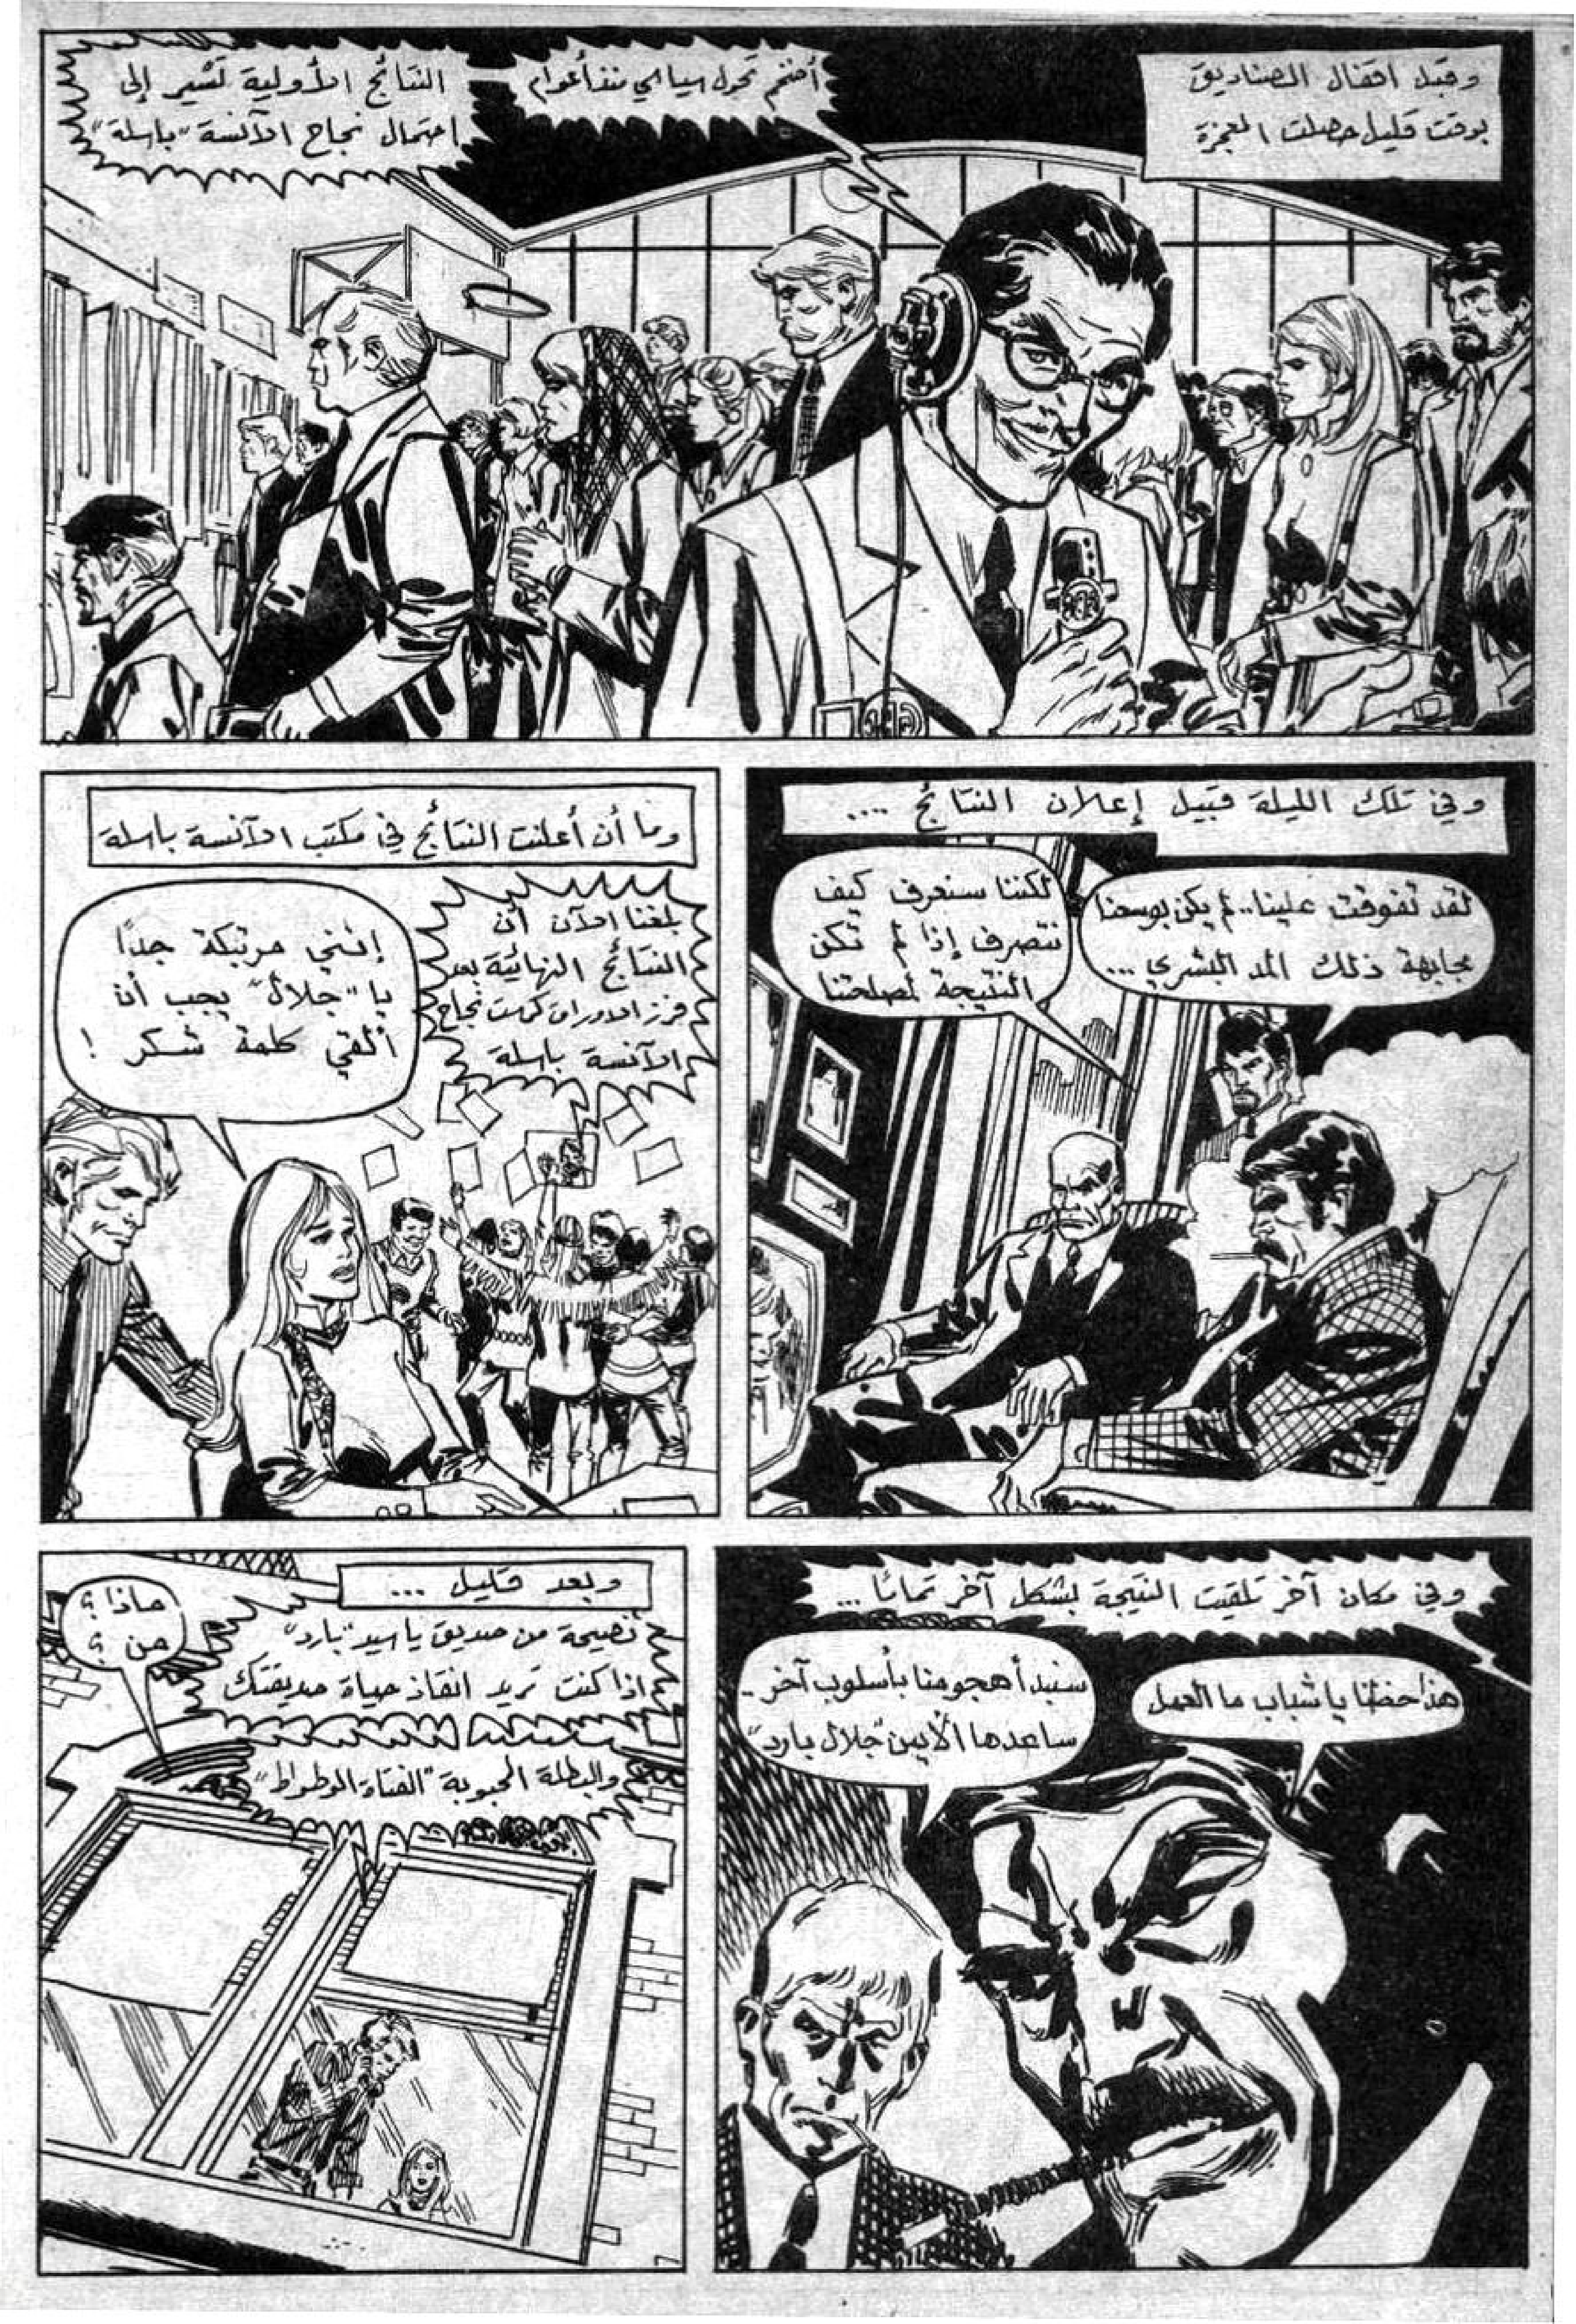 وقبل اقفال الصناديق
بوقت قليل حصلت المعجزة
أضخم تحول سياسي منذ أعوام
النتائج الأولية تشير إلى
احتمال نجاح الآنسة "باسلة"
وفي تلك الليلة قبيل إعلان النتائج ....
لقد تفوقت علينا.. لم يكن بوسعنا
مجابهة ذلك المد البشري ...
لكننا سنعرف كيف
نتصرف إذا لم تكن
النتيجة لمصلحتنا
وما أن أعلنت النتائج في مكتب الآنسة باسلة
بلغنا الآن أن
النتائج النهائية بعد
فرز الاوراق كرست نجاح
الآنسة باسلة
إنني مرتبكة جداً
يا "جلال" يجب أن
ألقي كلمة شكر !
وفي مكان آخر تلقيت النتيجة بشكل آخر تماماً...
هذا حظنا يا شباب ما العمل
سنبدأ هجومنا بأسلوب آخر ..
ساعدها الأيمن "جلال بارد"
وبعد قليل ...
نصيحة من صديق يا سيد "بارد"
اذا كنت تريد انقاذ حياة صديقتك
والبطلة المحبوبة "الفتاة الوطواط"
ماذا ؟
من ؟